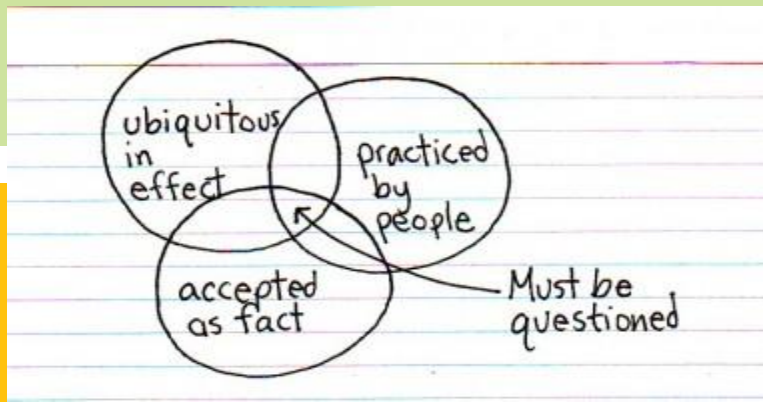 ubiquitous
in
effect
practiced
by
people
accepted
as fact
Must be
questioned